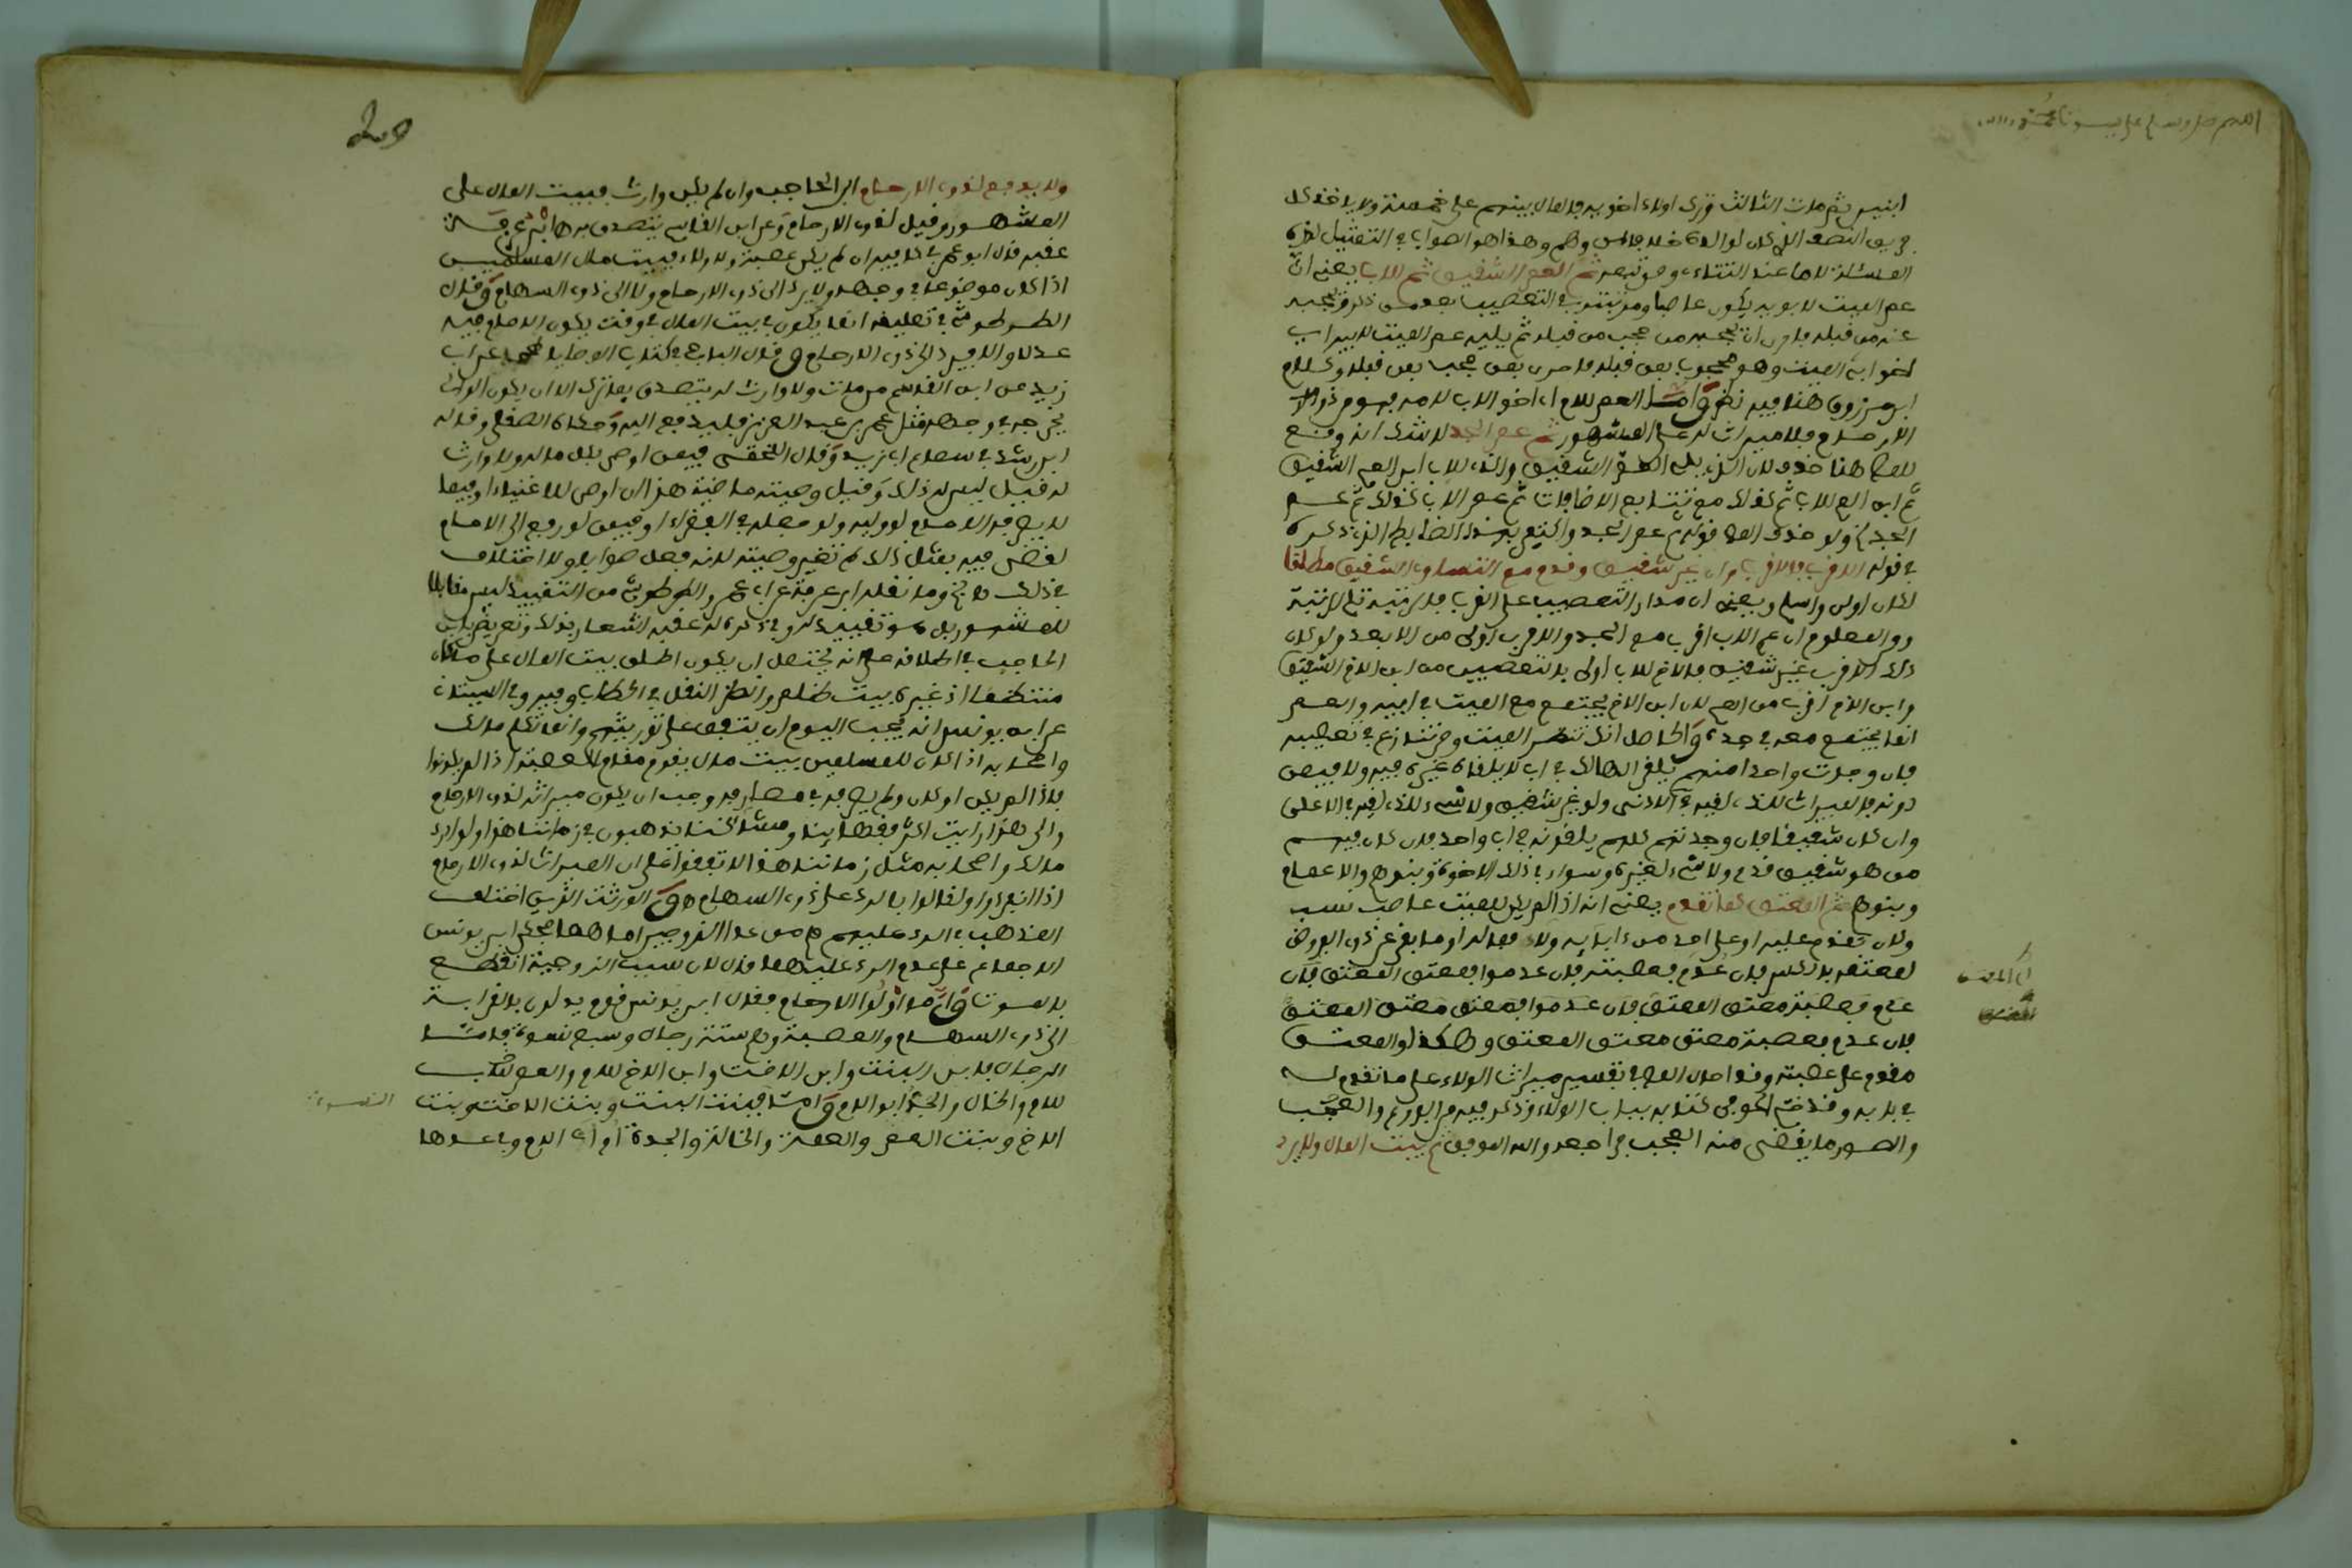 ابنين ثم مات الثالث وترك اولاد اخويه فالمال بينهم على خمسة ولا ياخذ كل
فريق النصف الذي كان لوالده خلافا لمن وهم وهذا هو الصواب في التمثيل لهذه
المسئلة لا ما عند التتاءي ومن تبعه ثم العم الشقيق ثم للاب يعني ان
عم الميت لابويه يكون عاصبا ومرتبته في التعصيب بعد من ذكر ويحجبه
عنه من قبله فاحرى ان يحجبه من حجب من قبله ثم يليه عم الميت لابيه اي
اخو ابي الميت وهو محجوب بمن قبله فاحرى بمن حجب بمن قبله وكلام
ابن مرزوق هنا فيه نظر واما العم للام اي اخو الاب لامه فهو من ذوي
الارحام فلا ميراث له على المشهور ثم عم الجد لا شك انه وقع
للمص هنا حذف لان الذي يلي العم الشقيق والذي للاب ابن العم الشقيق
ثم ابن العم للاب ثم كذلك مع تتابع الاضافات ثم عم الاب كذلك ثم عم
الجد ولو حذف المص قوله ثم عم الجد واكتفى بهذا الضابط الذي ذكره
في قوله الاقرب فالاقرب وان غير شقيق وقدم مع التساوي الشقيق مطلقا
لكان اولى واسلم ويعني ان مدار التعصيب على القرب فالرتبة تلي الرتبة
والمعلوم ان عم الاب اقرب من عم الجد والاقرب اولى من الابعد ولو كان
ذلك الاقرب غير شقيق فالاخ للاب اولى بالتعصيب من ابن الاخ الشقيق
وابن الاخ اقرب من العم لان ابن الاخ يجتمع مع الميت في ابيه والعم
انما يجتمع معه في جده والحاصل انك تنظر الميت ومن تنازع في تعصيبه
فان وجدت واحدا منهم يلقى الهالك في اب لا يلقاه غيره فيه ولا فيمن
دونه فالميراث للذي لقيه في الادنى ولو غير شقيق ولا شيء للذي لقيه في الاعلى
وان كان شقيقا فان وجدتهم كلهم يلقونه في اب واحد فان كان فيهم
من هو شقيق قدم ولا شيء لغيره وسواء في ذلك الاخوة وبنوهم والاعمام
وبنوهم ثم المعتق كما تقدم يعني انه اذا لم يكن للميت عاصب نسب
وكان تقدم عليه او على احد من ءابايه ولاء فماله او ما بقي عن ذوي الفروض
لمعتقه بالكسر فان عدم فعصبته فان عدموا فمعتق المعتق فان
عدم فعصبة معتق المعتق فان عدموا فمعتق معتق المعتق
فان عدم فعصبة معتق معتق المعتق وهكذا والمعتق
مقدم على عصبته وقد احال المص في تفسير ميراث الولاء على ما تقدم له
في بابه وقد ختم الحوفي كتابه بباب الولاء وذكر فيه من الفروع والعجب
والصور ما يقضى منه العجب فراجعه والله الموفق ثم بيت المال ولا يرد
ولا يدفع لذوي الارحام ابن الحاجب وان لم يكن وارث فبيت المال على
المشهور وقيل لذوي الارحام وعن ابن القاسم يتصدق به ابن عرفة
عقبه قال ابو عمر في كافيه ان لم يكن عصبة ولا ولاء فبيت مال المسلمين
اذا كان موضوعا في وجهه ولا يرد الى ذوي الارحام ولا الى ذوي السهام وقال
الطرطوشي في تعليقه انما يكون في بيت المال في وقت يكون الامام فيه
عدلا والا فيرد الى ذوي الارحام وقال الباجي في كتاب الوصايا عن ابي
زيد عن ابن القاسم من مات ولا وارث له يتصدق بما ترك الا ان يكون الوالي
يخرجه في وجهه مثل عمر بن عبد العزيز فليدفع اليه وحكاه الصقلي وقاله
ابن رشد في سماع ابي زيد وقال اللخمي فيمن اوصى بكل ماله ولا وارث
له فقيل ليس له ذلك وقيل وصيته ماضية هذا ان اوصى للاغنياء او فيما
لا يصرفه الامام لو وليه ولو جعله في الفقراء او فيمن لو رفع الى الامام
لقضى فيه بمثل ذلك لم تغير وصيته لانه فعل صوابا ولا اختلاف
في ذلك وما نقله ابن عرفة عن ابي عمر والطرطوشي من التقييد ليس مقابلا
للمشهور بل هو تقييد له وفي ذكره له عقبه اشعار بذلك وتعريض بابن
الحاجب في اطلاقه على انه يحتمل ان يكون اطلق بيت المال على ما كان
منتظما اذ غيره بيت ظلم وانظر النقل في الحطاب وفيه وفي السيتاني
عن ابن يونس انه يجب اليوم ان يتفق على توريثهم وانما تكلم مالك
واصحابه اذا كان للمسلمين بيت مال يقوم مقام العصبة اذا لم يكونوا
فاذا لم يكن او كان ولم يصرف في مصارفه وجب ان يكون ميراثه لذوي الارحام
والى هذا رايت اكثر فقهائنا ومشائخنا يذهبون في زماننا هذا ولو ادرك
مالك واصحابه مثل زماننا هذا لاتفقوا على ان الميراث لذوي الارحام
اذا انفردوا ولقالوا بالرد على ذوي السهام والورثة الذين اختلف
المذهب في الرد عليهم هم من عدا الزوجين اما هما فحكى ابن يونس
الاجماع على عدم الرد عليهما قال لان سبب الزوجية انقطع
بالموت واما اولوا الارحام فقال ابن يونس قوم يدلون بالقرابة
الى ذوي السهام والعصبة وهم ستة رجال وسبع نسوة فاما
الرجال فابن البنت وابن الاخت وابن الاخ للام والعم للام
للام والخال والجد ابو الام واما فبنت البنت وبنت الاخت وبنت
الاخ وبنت العم والعمة والخالة والجدة ام اب الام وما عداها
النسوة